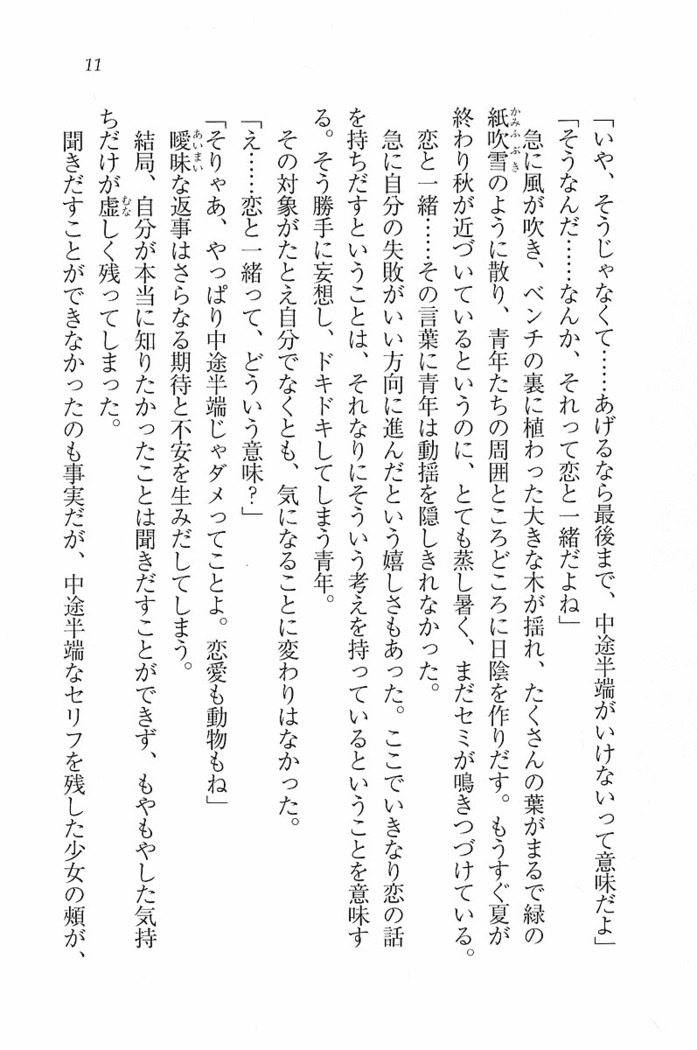 11
「いや、そうじゃなくて……あげるなら最後まで、中途半端がいけないって意味だよ」
「そうなんだ……なんか、それって恋と一緒だよね」
急に風が吹き、ベンチの裏に植わった大きな木が揺れ、たくさんの葉がまるで緑の
紙吹雪のように散り、青年たちの周囲ところどころに日陰を作りだす。もうすぐ夏が
終わり秋が近づいているというのに、とても蒸し暑く、まだセミが鳴きつづけている。
恋と一緒……その言葉に青年は動揺を隠しきれなかった。
急に自分の失敗がいい方向に進んだという嬉しさもあった。ここでいきなり恋の話
を持ちだすということは、それなりにそういう考えを持っているということを意味す
る。そう勝手に妄想し、ドキドキしてしまう青年。
その対象がたとえ自分でなくとも、気になることに変わりはなかった。
「え……恋と一緒って、どういう意味？」
「そりゃあ、やっぱり中途半端じゃダメってことよ。恋愛も動物もね」
曖昧な返事はさらなる期待と不安を生みだしてしまう。
結局、自分が本当に知りたかったことは聞きだすことができず、もやもやした気持
ちだけが虚しく残ってしまった。
聞きだすことができなかったのも事実だが、中途半端なセリフを残した少女の頰が、